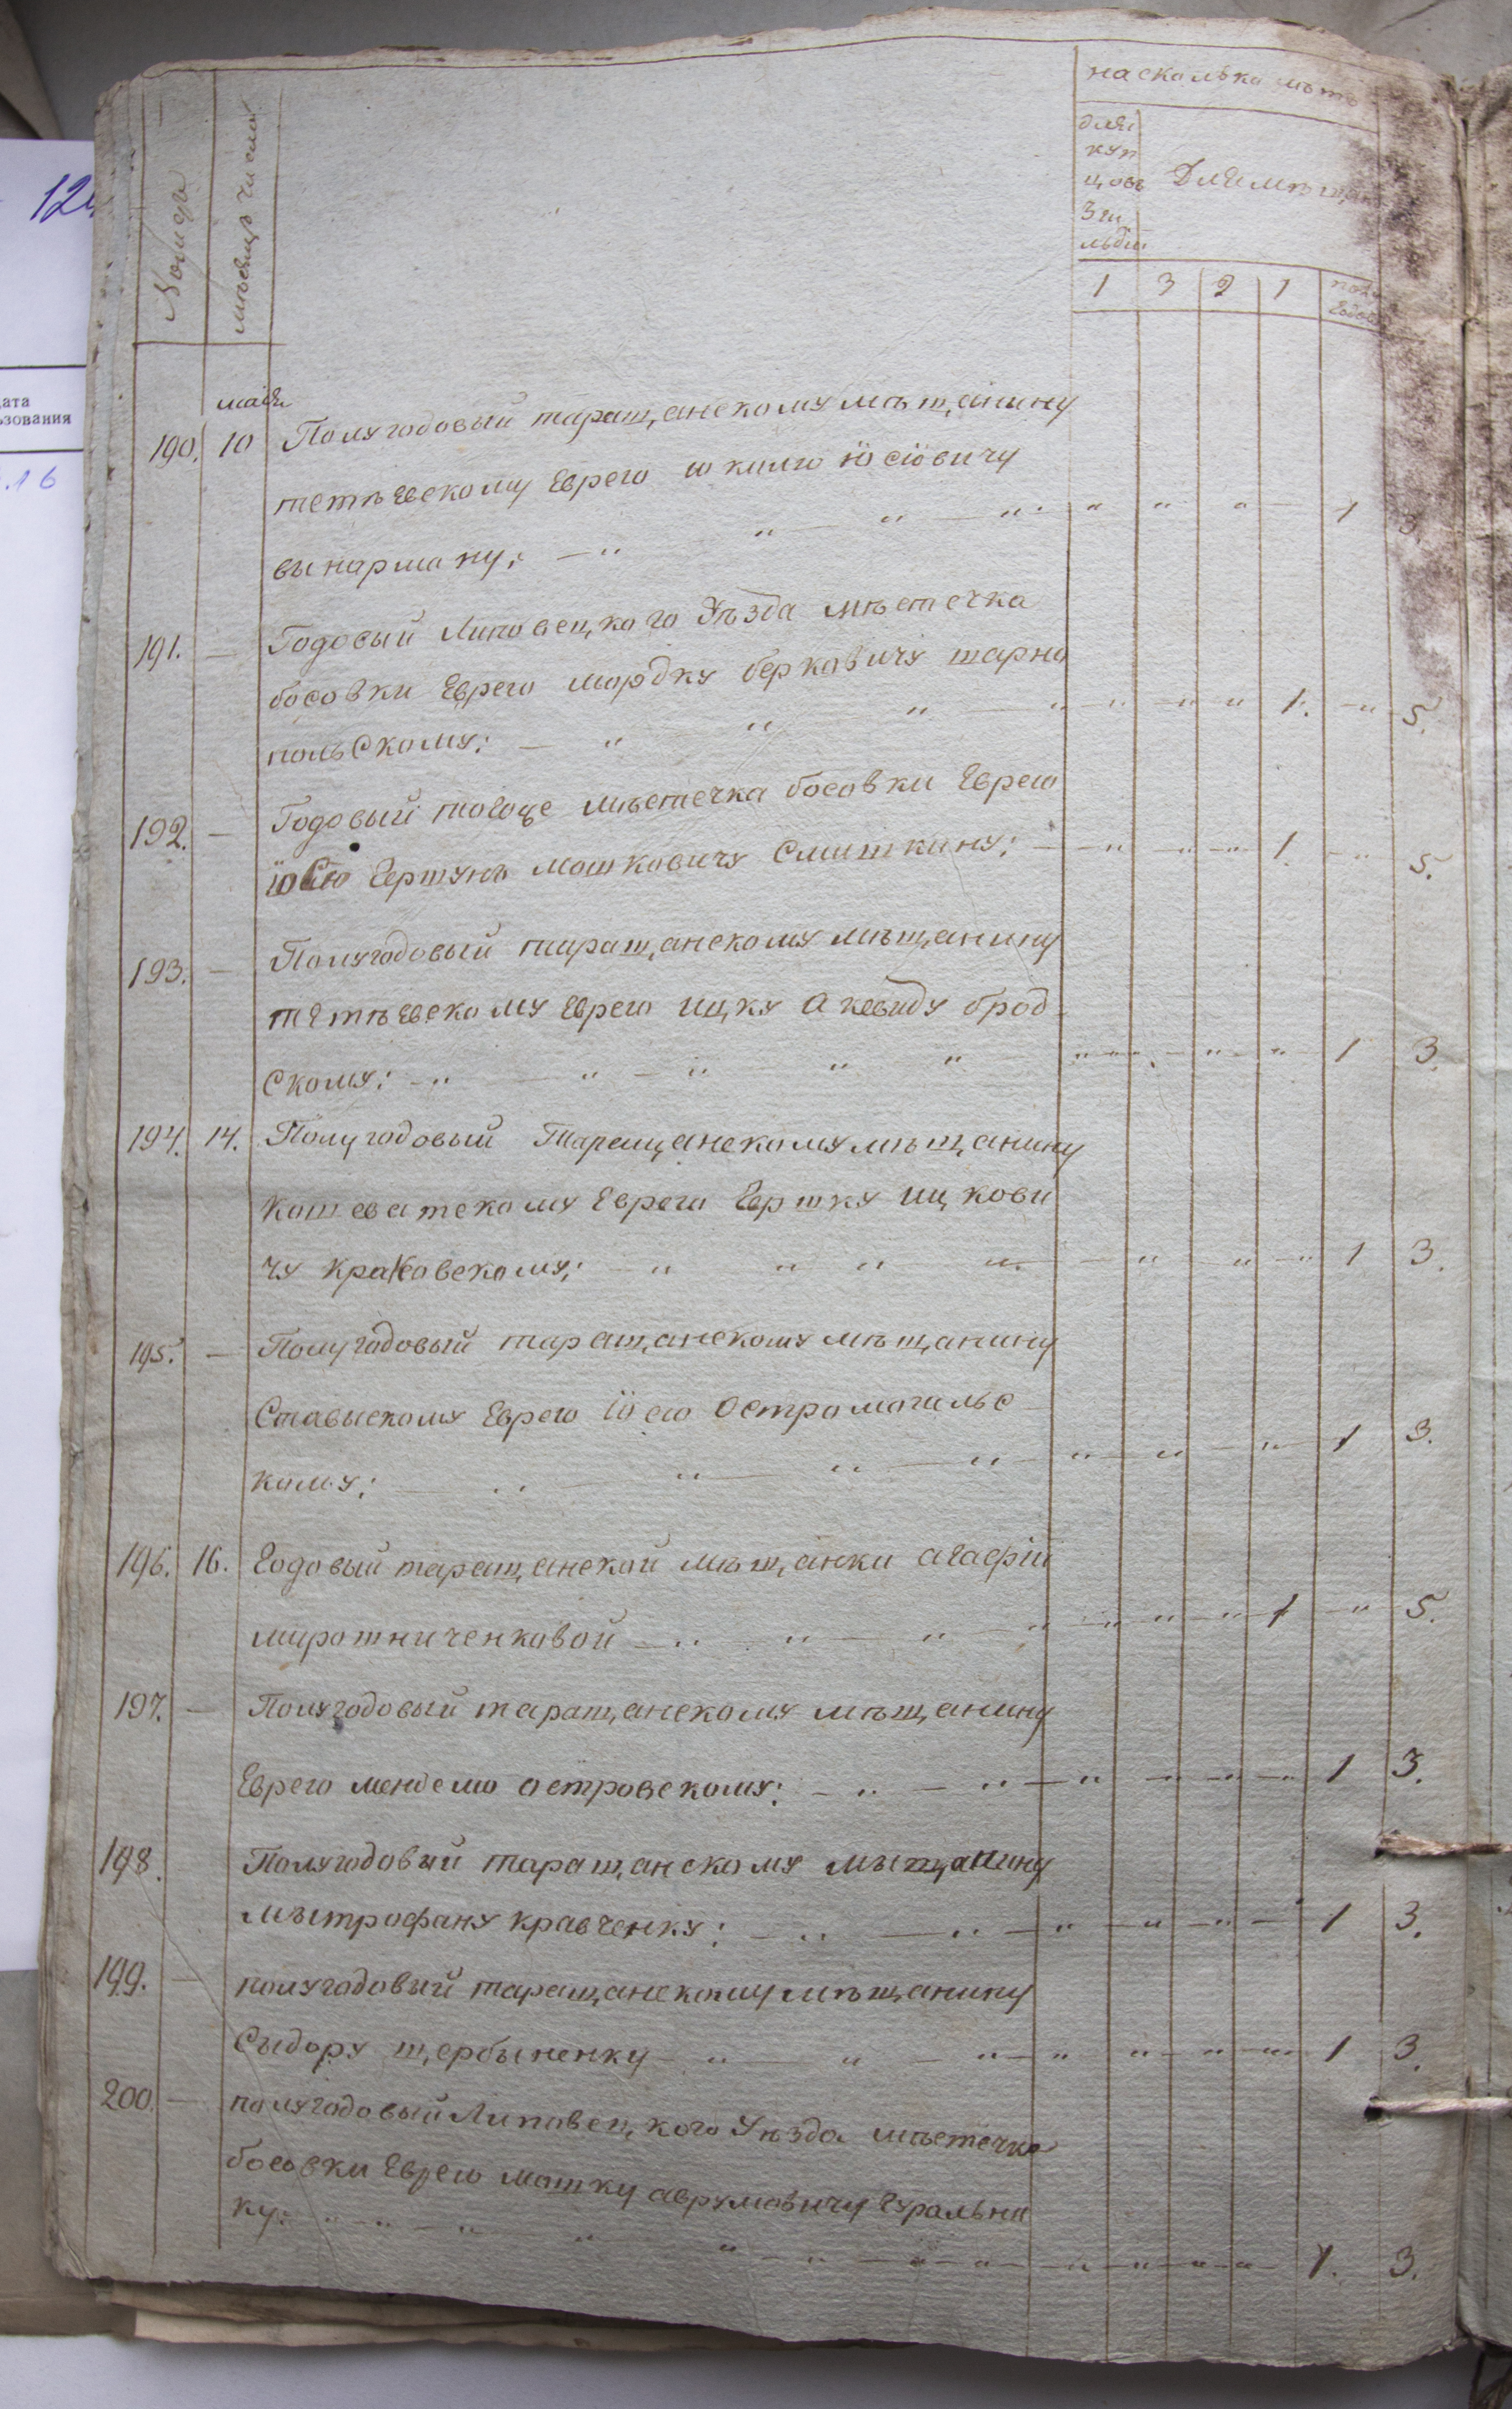 на сколько лѣтъ
для
куп
цовъ
3 ги
льдіи
Для мѣщанъ
Номеръ
мѣсяцъ и число
1 3 2 1 полу
годов
маія
190. 10 Полугодовый таращанскому мѣщанину
тетѣевскому Еврею Юсіовичу
1 3.
191. — Годовый Липовецкого Уѣзда мѣстечка
босовки Еврею мордку берковичу тарно
польскому: 1. 5.
192. — Годовый тогоже мѣстечка босовки Еврею
мошковичу 1. 5.
193. — Полугодовый таращанскому мѣщанину
тетѣевскому Еврею ицку брод
скому: 1 3.
194. 14. Полугодовый Таращанскому мѣщанину
кошеватскому Еврею Гершку ицкови
чу краковскому: 1 3.
195. — Полугодовый таращанскому мѣщанину
Ставыскому Еврею Іосю Остромогильс
кому: 1 3.
196. 16. Годовый таращанской мѣщанки агафіи
мирошниченковой 1 5.
197. — Полугодовый таращанскому мѣщанину
Еврею менделю островскому: 1 3.
198. Полугодовый таращанскому мѣщанину
мытрофану кравченку: 1 3.
199. — полугодовый таращанскому мѣщанину
Сыдору щербыненку 1 3.
200. — полугодовый Липовецкого Уѣзда мѣстечка
босовки Еврею мошку аврумовичу Гуральни
ку: 1. 3.